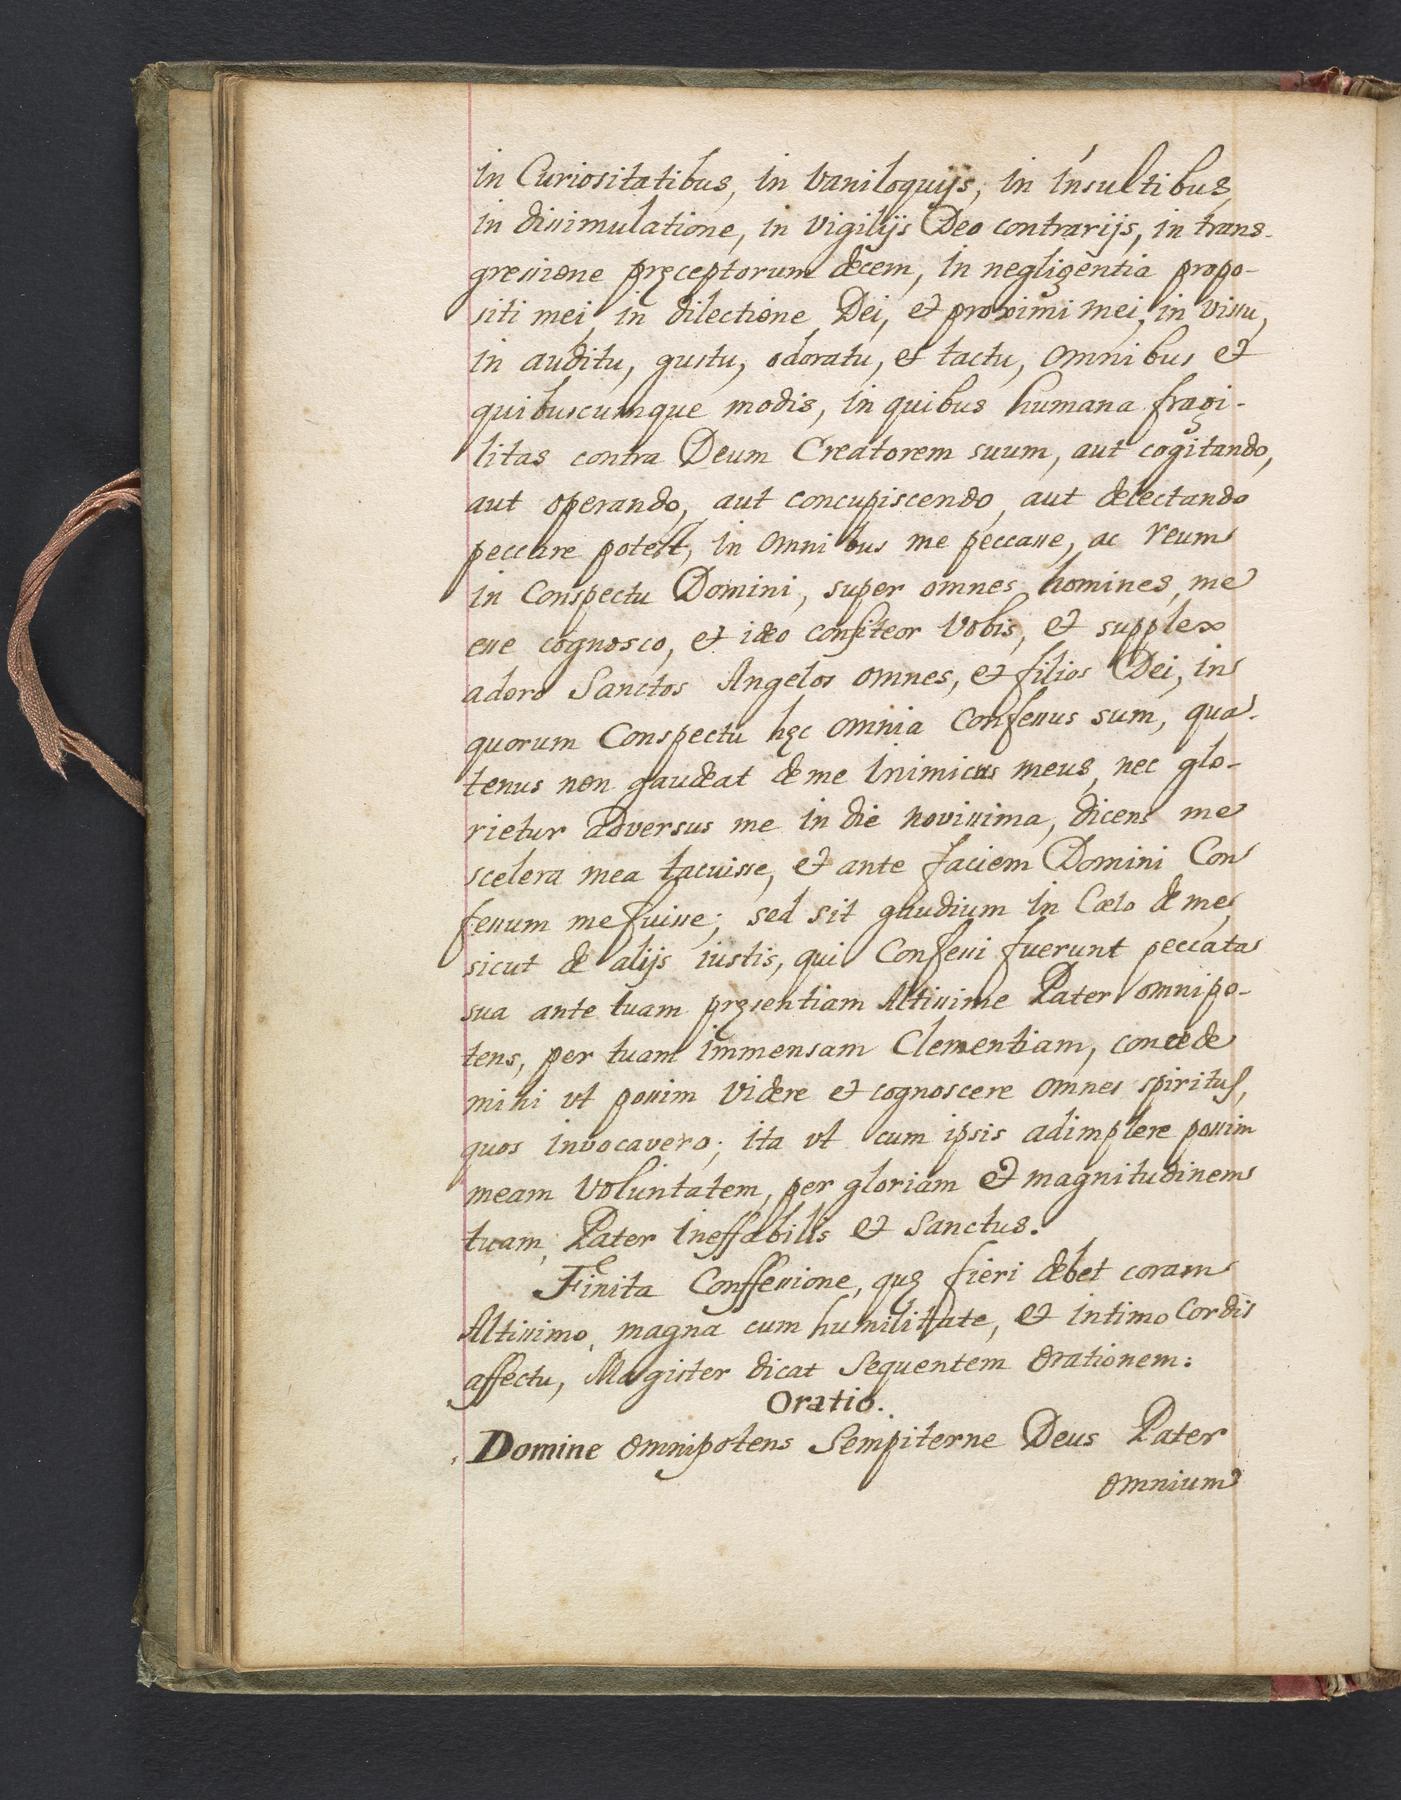 in Curiositatibus, in Vaniloquijs, in ínsultibus
in dissimulatione, in vigilijs Deo contrarijs, in trans-
gressione pręceptorum decem, in negligentia propo-
siti mei, in dilectione Dei, et proximi mei, in vissu,
in auditu, gustu, odoratu, et tactu, omnibus et
quibuscumque modis, in quibus humana fragi-
litas contra Deum Creatorem suum, aut cogitando,
aut operando, aut concupiscendo, aut delectando
peccare potest, in omnibus me peccasse, ac reum
in Conspectu Domini, super omnes homines, me
esse cognosco, et ideo confiteor Vobis, et supplex
adoro Sanctos Angelos omnes, et filios Dei, in
quorum Conspectu hęc omnia Confessus sum, qua-
tenus non gaudeat de me Inimicus meus, nec glo-
rietur adversus me in die novissima, dicens me
scelera mea tacuisse, et ante faciem Domini Con
fessum me fuisse; sed sit gaudium in Cœlo de me,
sicut de alijs iustis, qui Confessi fuerunt peccata
sua ante tuam pręsentiam Altissime Pater omnipo-
tens, per tuam immensam Clementiam, concede
mihi vt possim Videre et cognoscere omnes spiritus,
quos invocavero; ita vt cum ipsis adimplere possim
meam Voluntatem, per gloriam et magnitudinem
tuam, Pater Ineffabilis et Sanctus.
Finita Conffessione, quę fieri debet coram
Altissimo, magna cum humilitate, et intimo Cordis
affectu, Magister dicat Sequentem Orationem:
Oratio.
Domine Omnipotens Sempiterne Deus Pater
Omnium